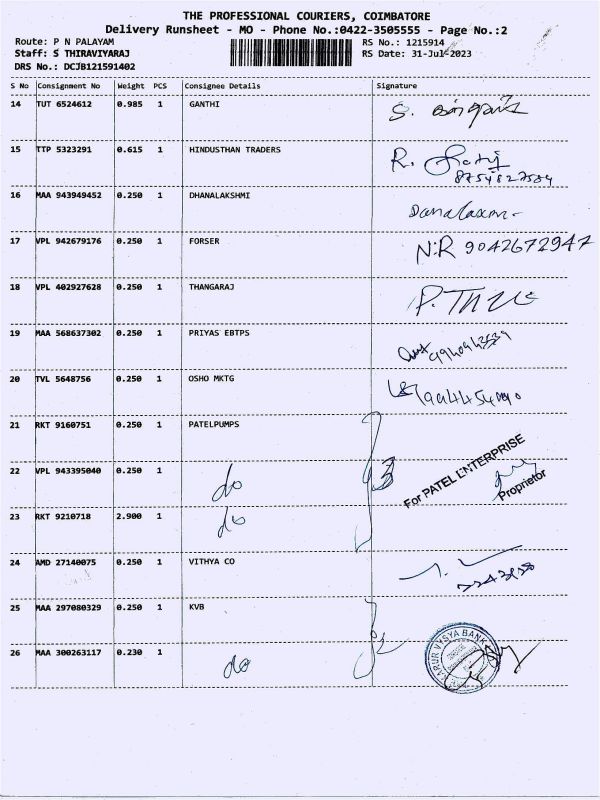 THE PROFESSIONAL COURIERS, COIMBATORE
Delivery Runsheet - MO - Phone No.:0422-3505555 - Page No.:2
Route: P N PALAYAM RS No.: 1215914
Staff: S THIRAVIYARAJ RS Date: 31-Jul-2023
DRS No.: DCJB121591402
S No Consignment No Weight PCS Consignee Details Signature
14 TUT 6524612 0.985 1 GANTHI S.
15 TTP 5323291 0.615 1 HINDUSTHAN TRADERS R.
16 MAA 943949452 0.250 1 DHANALAKSHMI Danalaxmi
17 VPL 942679176 0.250 1 FORSER N.R 9042672947
18 VPL 402927628 0.250 1 THANGARAJ P.
19 MAA 568637302 0.250 1 PRIYAS EBTPS
20 TVL 5648756 0.250 1 OSHO MKTG
21 RKT 9160751 0.250 1 PATELPUMPS
22 VPL 943395040 0.250 1 do 3 For PATEL ENTERPRISE
Proprietor
23 RKT 9210718 2.900 1 do
24 AMD 27140075 0.250 1 VITHYA CO
25 MAA 297080329 0.250 1 KVB 2
26 MAA 300263117 0.230 1 do KARUR VYSYA BANK